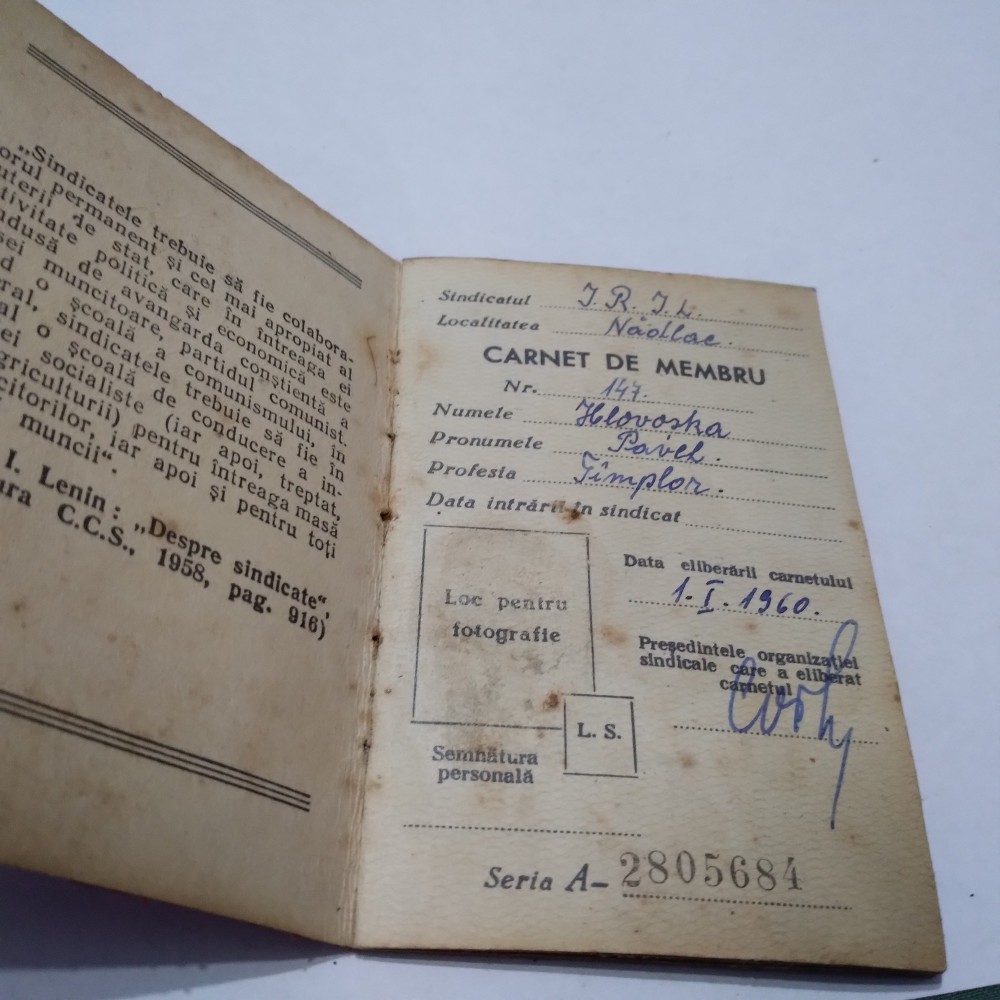 „Sindicatele trebuie să fie colabora-
orul permanent și cel mai apropiat al
uterii de stat, care în întreaga ei
tivitate politică și economică este
ndusă de avangarda conștientă a
sei muncitoare, partidul comunist.
d o școală a comunismului, în
ral, sindicatele trebuie să fie în
al o școală de conducere a in-
ei socialiste (iar apoi, treptat,
griculturii) pentru întreaga masă
citorilor, iar apoi și pentru toți
muncii“.
I. Lenin: „Despre sindicate“,
ura C.C.S., 1958, pag. 916)
Sindicatul I. R. I. L.
Localitatea Nădlac.
CARNET DE MEMBRU
Nr. 147.
Numele Hlovoska
Pronumele Pavel.
Profesia Tîmplar.
Data intrării în sindicat
Loc pentru
fotografie
L. S.
Semnătura
personală
Data eliberării carnetului
1. I. 1960.
Președintele organizației
sindicale care a eliberat
carnetul
Seria A- 2805684